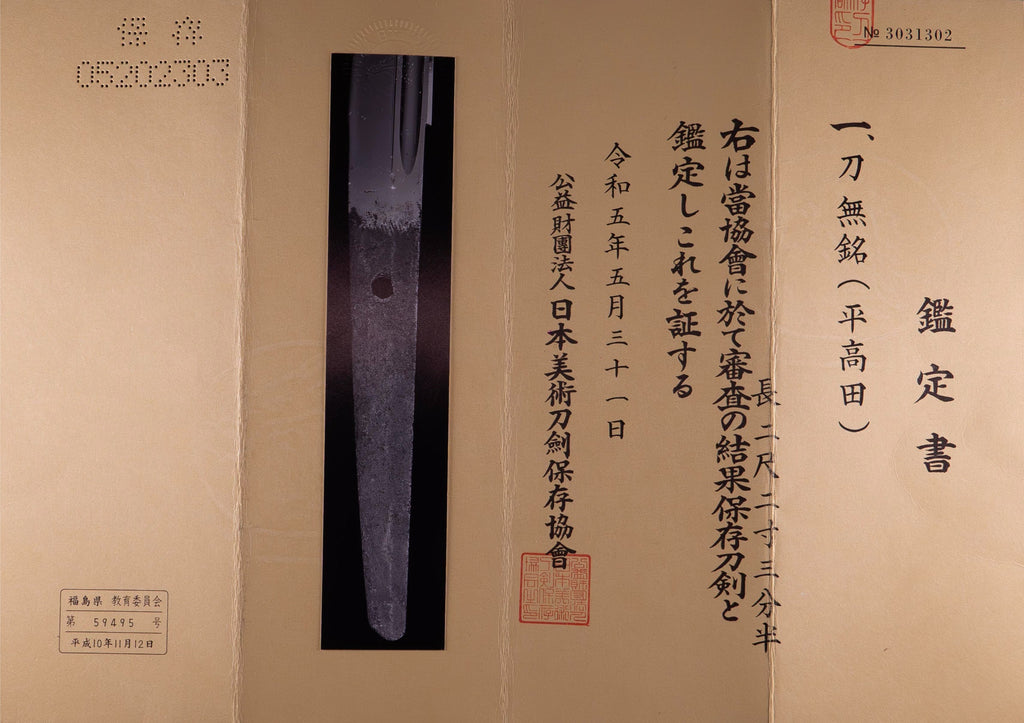 № 3031302
鑑定書
一、刀 無銘(平高田)
長二尺二寸三分半
右は當協會に於て審査の結果保存刀剣と
鑑定しこれを証する
令和五年五月三十一日
公益財團法人 日本美術刀劍保存協會
保存
05202303
福島県 教育委員会
第 59495 号
平成10年11月12日